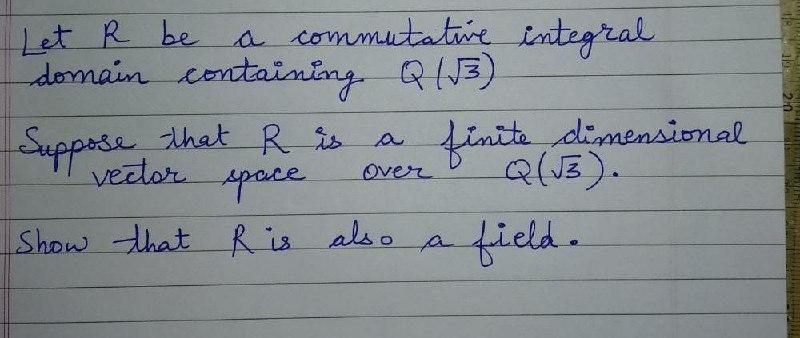 Let R be a commutative integral
domain containing Q(√3)
Suppose that R is a finite dimensional
vector space over Q(√3).
Show that R is also a field.
20